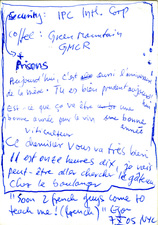 Security: IPC Intl. Corp
Coffee: Green Mountain
GMCR
Prisons
Aujourd'hui, c'est aussi l'anniversaire
de la Mère. Tu es bien jolie aujourd'hui
Est-ce que ça va être une
bonne année par le vin bonne
année
viticulteur
Ce chemisier vous va très bien
Il est onze heures dix, je vais
peut-être aller chercher le gâteau
chez le boulanger
"Soon 2 french guys come to
teach me! (french)"
05 NYC